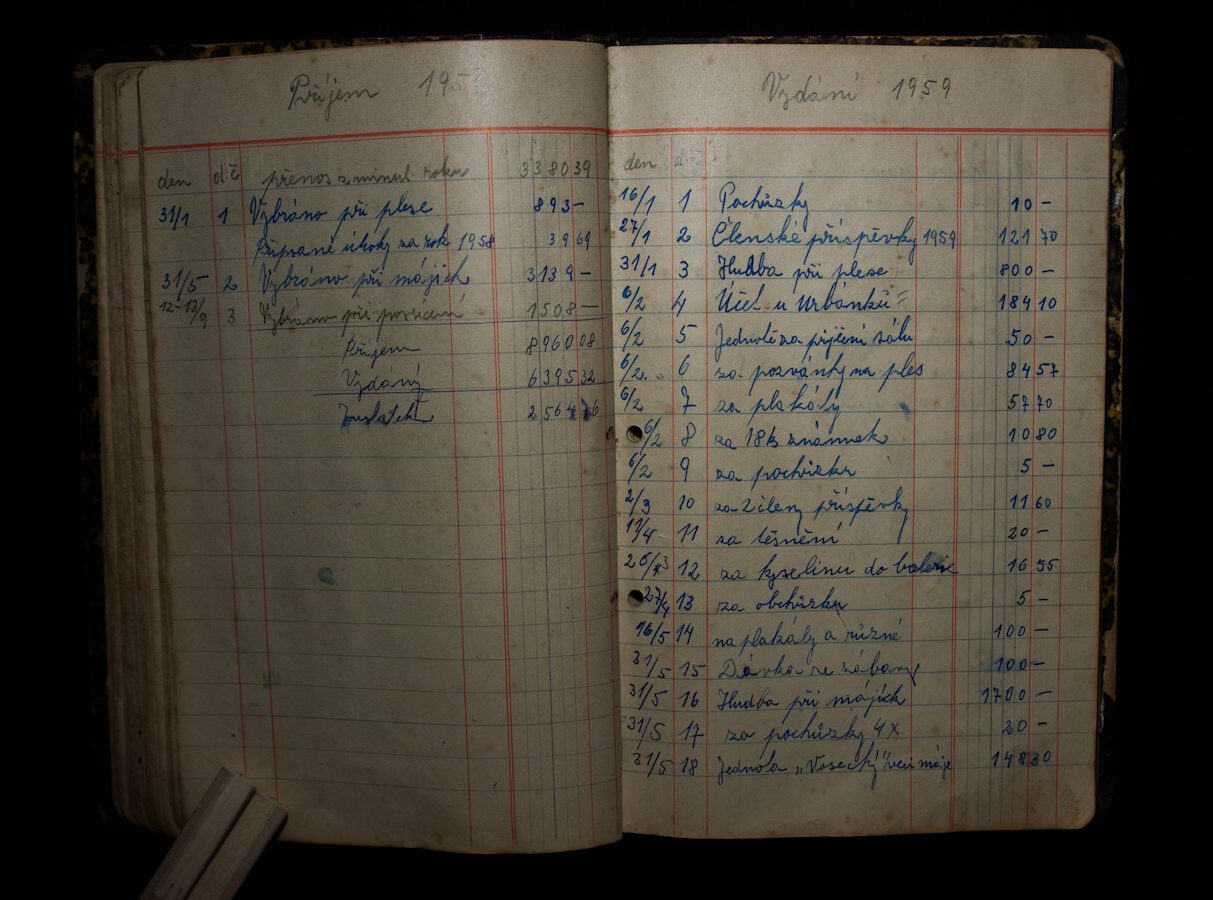 Příjem 1959
den d.č přenos z minul. roku 3 380 39
31/1 1 Vybráno při plese 893 –
Připsané úroky za rok 1958 39 69
31/5 2 Vybráno při májích 3139 –
12-13/9 3 Vybráno při posvícení 1508 –
Příjem 8960 08
Vydání 6395 32
Zustatek 2564 76
Vydání 1959
den d.č
16/1 1 Pochůzky 10 –
27/1 2 Členské příspěvky 1959 121 70
31/1 3 Hudba při plese 800 –
6/2 4 Účet u Urbánků 184 10
6/2 5 Jednotě za půjčení sálu 50 –
6/2 6 za pozvánky na ples 84 57
6/2 7 za plakáty 57 70
6/2 8 za 18 ks známek 10 80
6/2 9 za pochůzku 5 –
2/3 10 za 2 členy příspěvky 11 60
17/4 11 za těsnění 20 –
12 za kyselinu do baterie 16 55
27/4 13 za obchůzku 5 –
16/5 14 na plakáty a různé 100 –
31/5 15 Dávka ze zábavy 100 –
31/5 16 Hudba při májích 1700 –
31/5 17 za pochůzky 4x 20 –
31/5 18 Jednota „Vosecký" máje 148 30